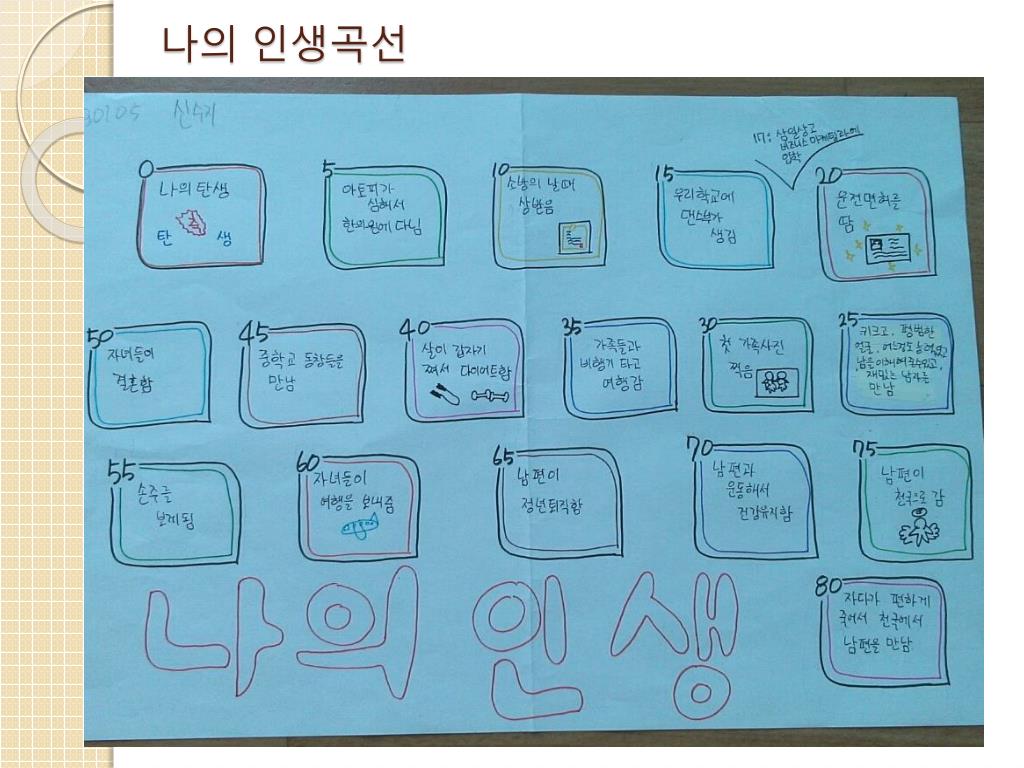 나의 인생곡선
30105 신수지
17: 삼일상고
비즈니스 마케팅과에
입학
0
나의 탄생
축
탄 생
5
아토피가
심해서
한의원에 다님
10
소방의 날 때
상받음
15
우리학교에
댄스부가
생김
20
운전면허를
땀
50
자녀들이
결혼함
45
중학교 동창들을
만남
40
살이 갑자기
쪄서 다이어트함
35
가족들과
비행기 타고
여행감
30
첫 가족사진
찍음
25
키크고, 평범한
얼굴,
남을 이해해줄수있고,
재밌는 남자를
만남
55
손주를
보게됨
60
자녀들이
여행을 보내줌
65
남편이
정년퇴직함
70
남편과
운동해서
건강유지함
75
남편이
천국으로 감
80
자다가 편하게
죽어서 천국에서
남편을 만남
나의 인생